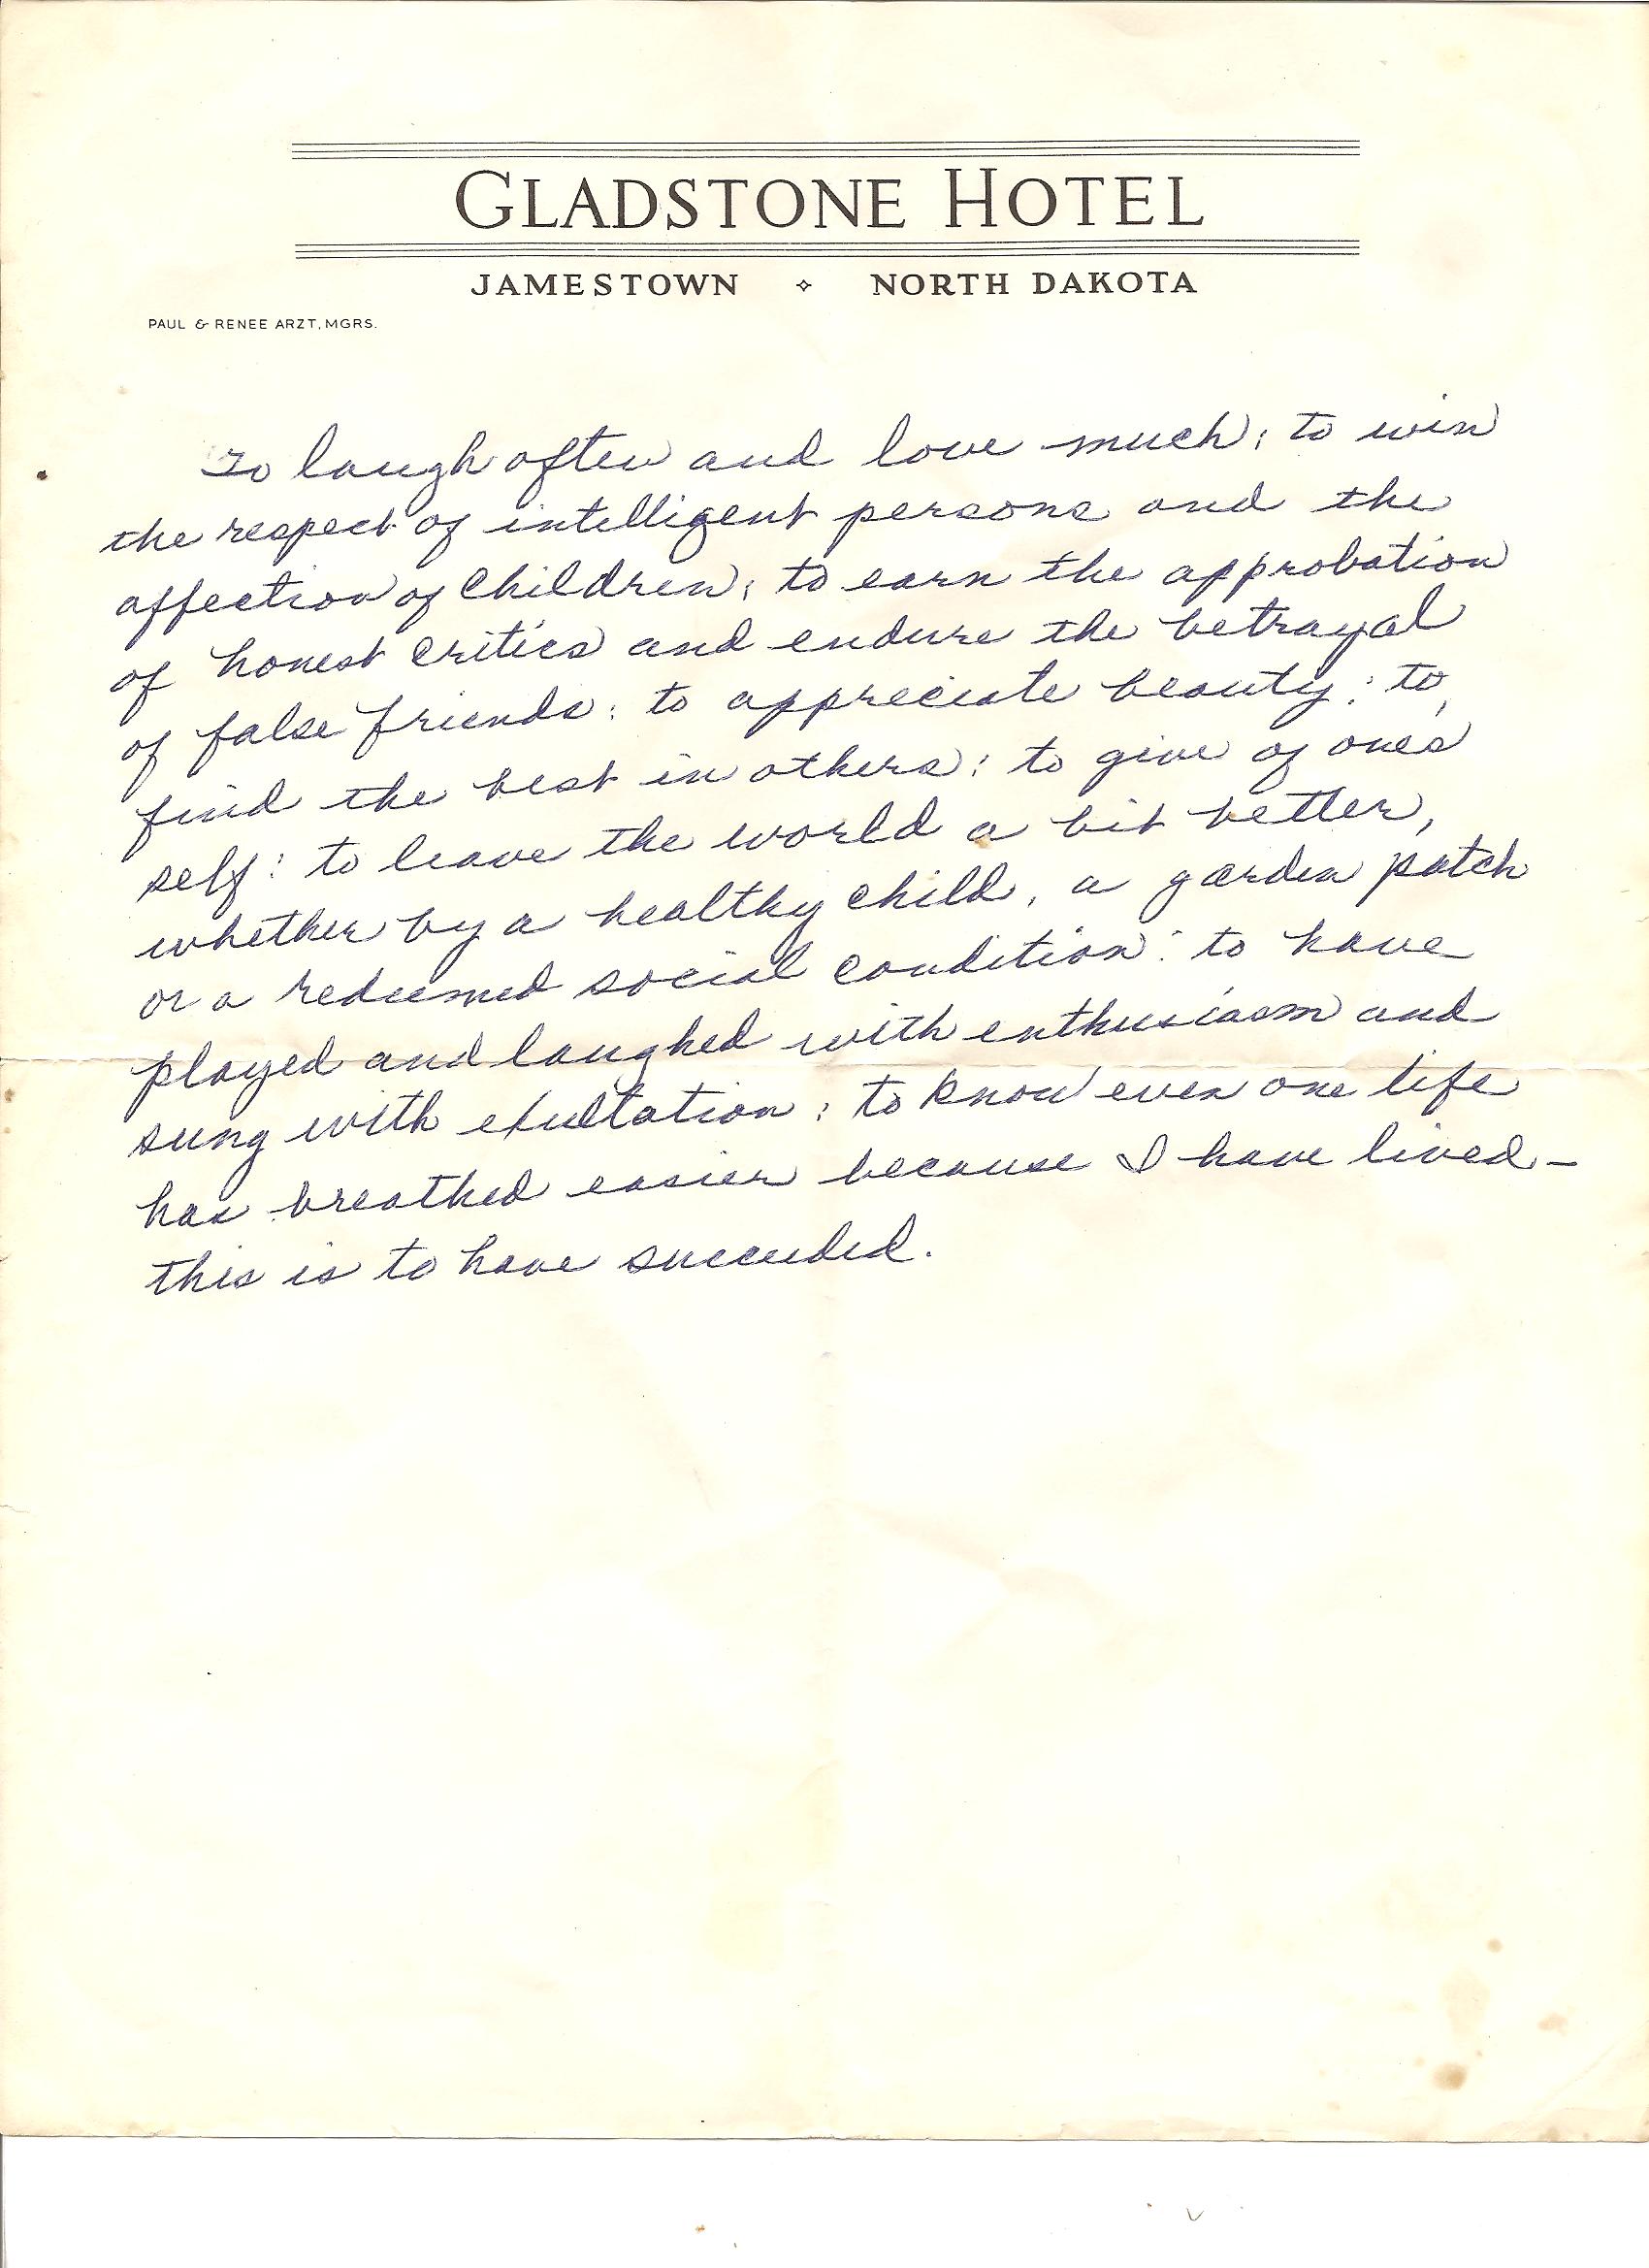 GLADSTONE HOTEL
JAMESTOWN ⟡ NORTH DAKOTA
PAUL & RENEE ARZT, MGRS.
To laugh often and love much; to win
the respect of intelligent persons and the
affection of children; to earn the approbation
of honest critics and endure the betrayal
of false friends; to appreciate beauty; to
find the best in others; to give of one's
self; to leave the world a bit better,
whether by a healthy child, a garden patch
or a redeemed social condition; to have
played and laughed with enthusiasm and
sung with exultation; to know even one life
has breathed easier because I have lived-
this is to have succeeded.